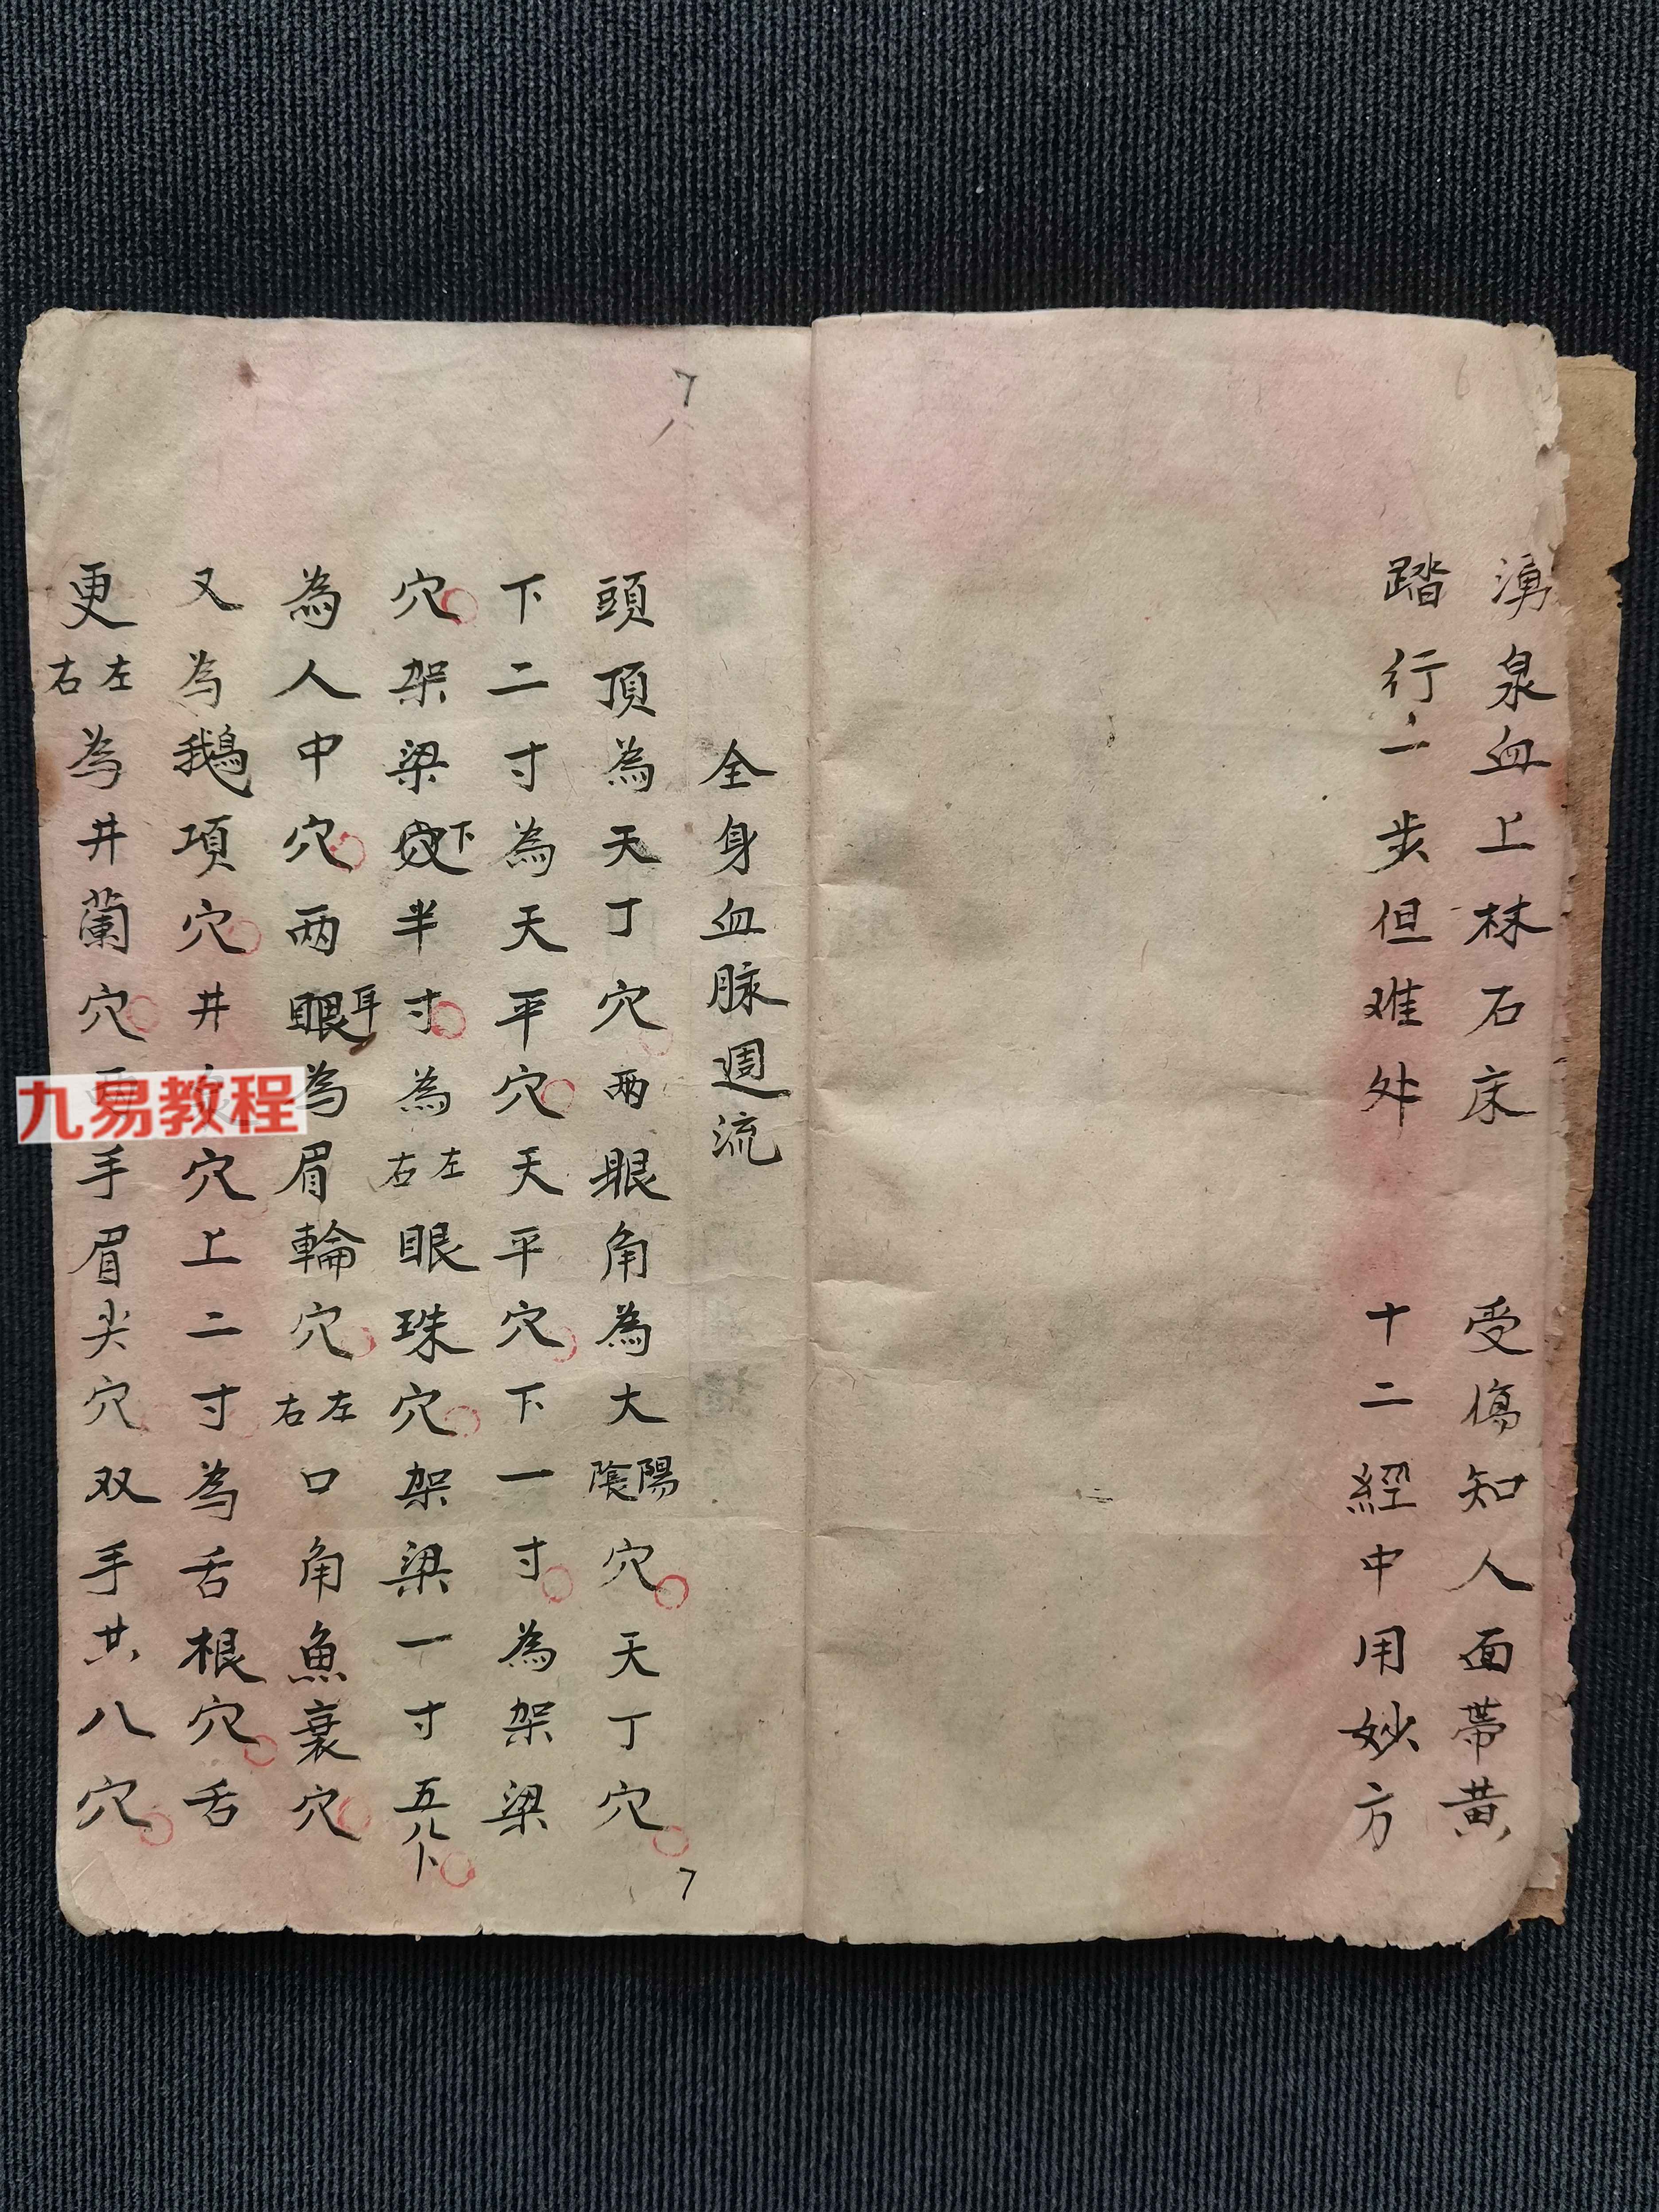 湧泉血上林石床　受傷知人面帶黃
踏行一步但难外　十二經中用妙方
6
7
全身血脉週流
頭頂為天丁穴兩眼角為大陽陰穴天丁穴
下二寸為天平穴天平穴下一寸為架梁
穴架梁下半寸為左右眼珠穴架梁一寸五八卜
為人中穴两眼耳為眉輪穴左右口角魚衰穴
又為鵝項穴井穴上二寸為舌根穴舌
更左右為井蘭穴手眉尖穴双手共八穴
7
九易教程